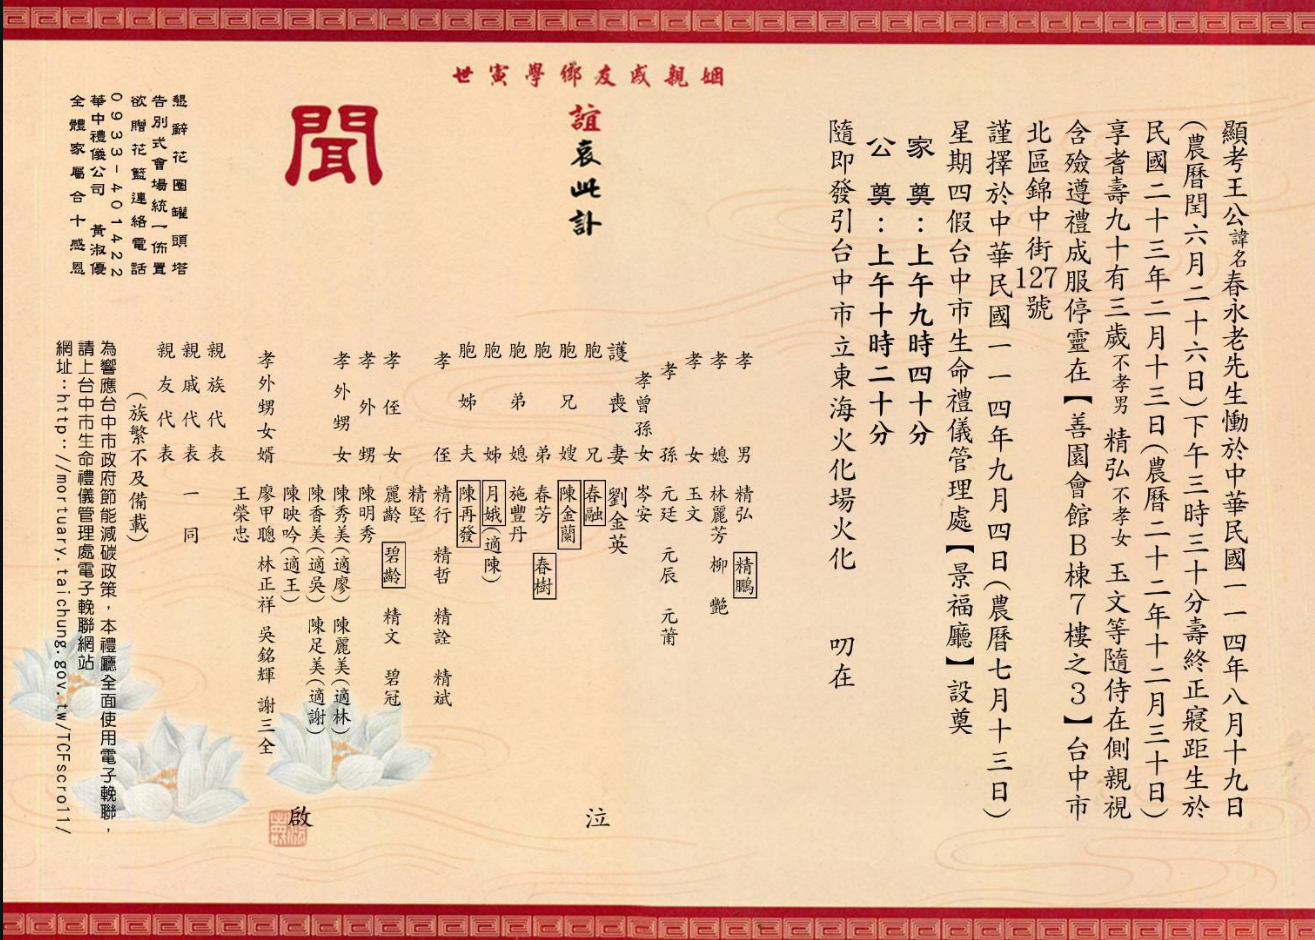 顯考王公諱名春永老先生慟於中華民國一一四年八月十九日
(農曆閏六月二十六日)下午三時三十分壽終正寢距生於
民國二十三年二月十三日(農曆二十二年十二月三十日)
享耆壽九十有三歲不孝男 精弘不孝女 玉文等隨侍在側親視
含殮遵禮成服停靈在【善園會館B棟7樓之3】台中市
北區錦中街127號
謹擇於中華民國一一四年九月四日(農曆七月十三日)
星期四假台中市生命禮儀管理處【景福廳】設奠
家 奠:上午九時四十分
公 奠:上午十時二十分
隨即發引台中市立東海火化場火化 叨在
姻親戚友鄉學寅世
誼哀此訃
聞
孝男 精弘 精鵬
孝媳 林麗芳 柳 艷
孝女 玉文
孝孫 元廷 元辰 元莆
孝曾孫女 岑安
護喪妻 劉金英
胞兄 春融
胞兄嫂 陳金蘭
胞弟 春芳 春樹
胞弟媳 施豐丹
胞姊 月娥(適陳)
胞姊夫 陳再發
孝侄 精行 精哲 精詮 精斌
精堅
孝侄女 麗齡 碧齡 精文 碧冠
孝外甥 陳明秀
孝外甥女 陳秀美(適廖) 陳麗美(適林)
陳香美(適吳) 陳足美(適謝)
陳映吟(適王)
孝外甥女婿 廖甲聰 林正祥 吳銘輝 謝三全
王榮忠
泣
啟
親族代表
親戚代表 一 同
親友代表
(族繁不及備載)
懇辭花圈罐頭塔
告別式會場統一佈置
欲贈花籃連絡電話
0933-401422
華中禮儀公司 黃淑優
全體家屬合十感恩
為響應台中市政府節能減碳政策,本禮廳全面使用電子輓聯,
請上台中市生命禮儀管理處電子輓聯網站
網址:http://mortuary.taichung.gov.tw/TCFscroll/